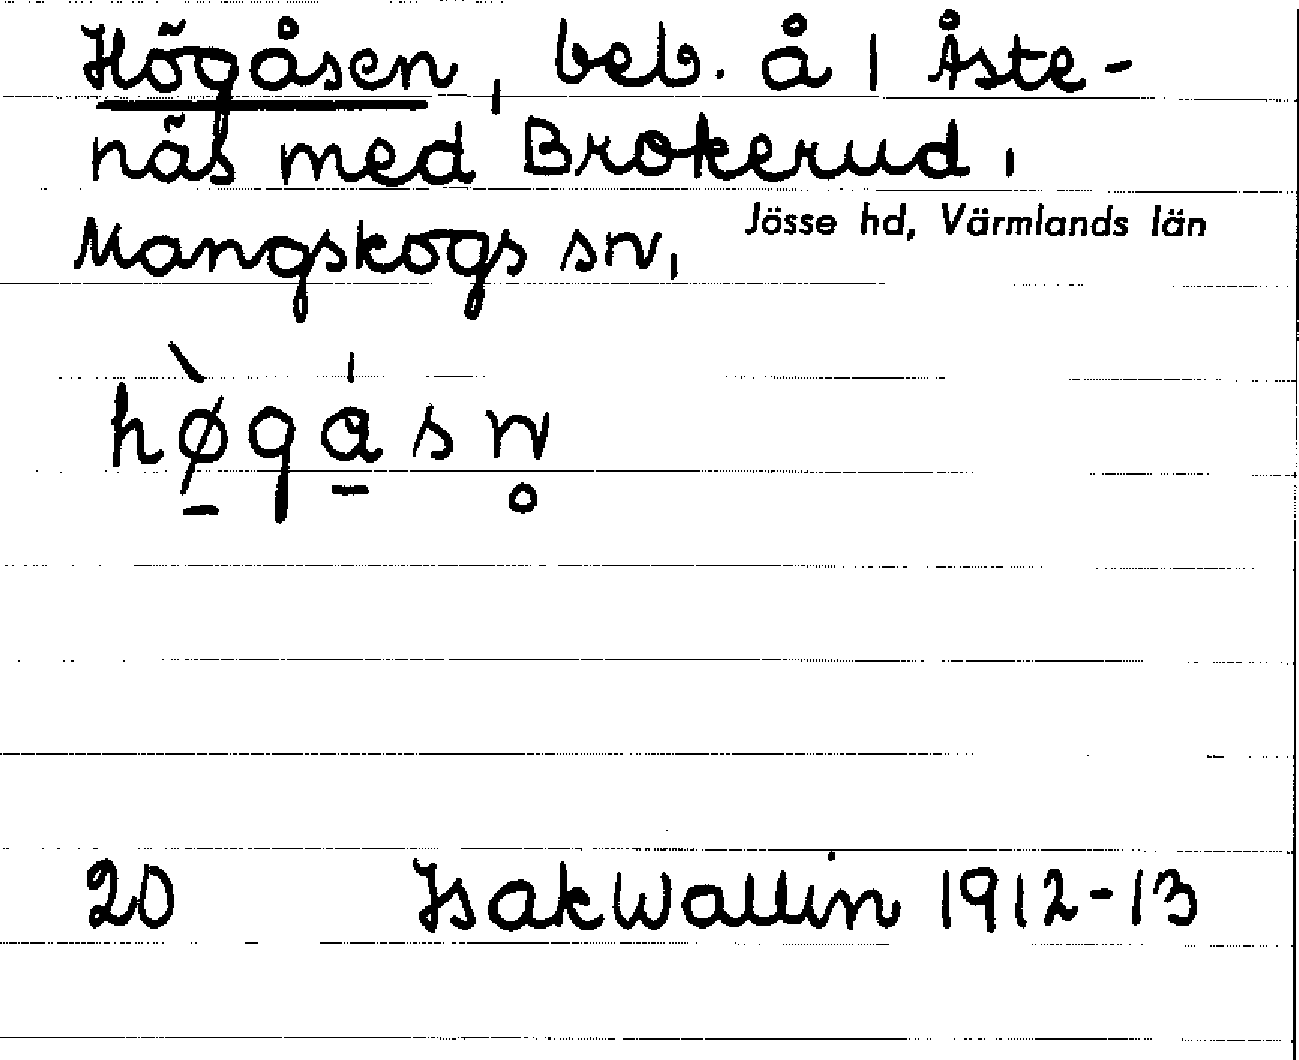 Högåsen, beb. å 1 Åste-
näs med Brokerud,
Mangskogs sn,
Jösse hd, Värmlands län
hø̠̀ga̠̍sn̥
20 Isak Wallin 1912-13